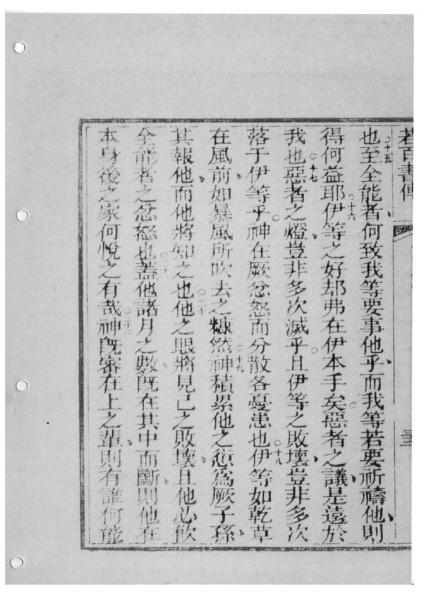 若百書傳
十五
也至全能者何致我等要事他乎而我等若要祈禱他則
十六
得何益耶伊等之好却弗在伊本手矣惡者之議是遠於
十七
我也惡者之燈豈非多次滅乎且伊等之敗壞豈非多次
落于伊等乎神在厥忿怒而分散各憂患也伊等如乾草
十八
在風前如暴風所吹去之糠然神積累他之愆為厥子孫
十九
其報他而他將知之也他之眼將見己之敗壞且他必飲
二十
全能者之忿怒也蓋他諸月之數既在其中而斷則他在
本身後之家何悅之有哉神既審在上之輩則有誰何能